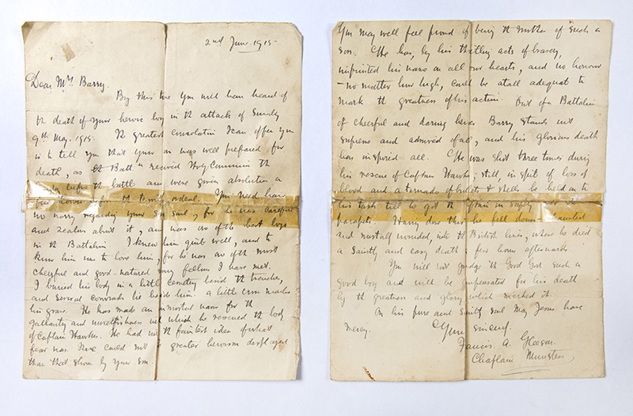 2nd June. 1915.
Dear Mrs Barry.
By this time you will have heard of
the death of your heroic boy in the attack of Sunday
9th May. 1915. The greatest consolation I can offer you
is to tell you that your son was well prepared for
death, as the Battn received Holy Communion the
before the battle and were given absolution
You need have
no worry regarding your son's soul, for he was careful
and zealous about it, and was one of the best boys
in the Battalion. I knew him quite well, and to
know him was to love him, for he was one of the most
cheerful and good-natured young fellows I have met.
I buried his body in a little cemetery behind the trenches,
and several comrades lie beside him. A little cross marks
his grave. He has made an immortal name for the
gallantry and unselfishness with which he rescued the body
of Captain Hawkes. He had not the faintest idea of what
fear was. There could not be greater heroism displayed
than that shown by your son.
You may well feel proud of being the mother of such a
son. He has, by his thrilling acts of bravery,
imprinted his name on all our hearts, and no honour
- no matter how high, could be at all adequate to
mark the greatness of his action. Out of a Battalion
of cheerful and daring heroes Barry stands out
supreme and admired of all, and his glorious death
has inspired all. He was shot three times during
his rescue of Captain Hawkes; still, in spite of loss of
blood and a tornado of bullets & shells he held on to
his task till he got the Captain in safety
parapets. Having done that he fell down exhausted
and mortally wounded, into the British lines, where he died
a saintly and easy death a few hours afterwards.
You will not grudge the Good God such a
good boy and will be compensated for his death
by the greatness and glory which marked it.
On his pure and saintly soul may Jesus have
mercy.
Yours sincerely,
Francis A. Gleeson.
Chaplain Munsters.